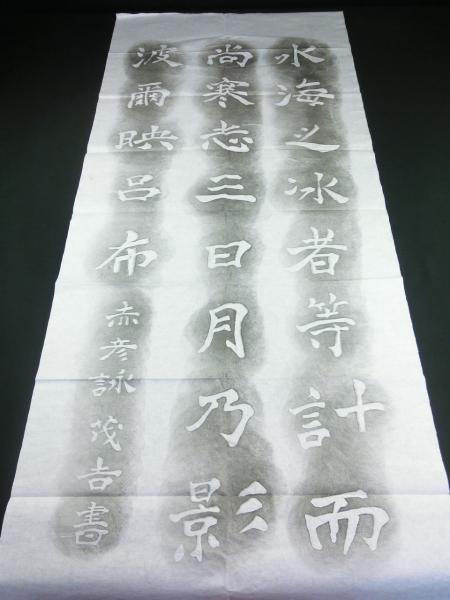 水海之冰者等計而
尚寒志三日月乃影
波爾映呂布
赤彦詠 茂吉書